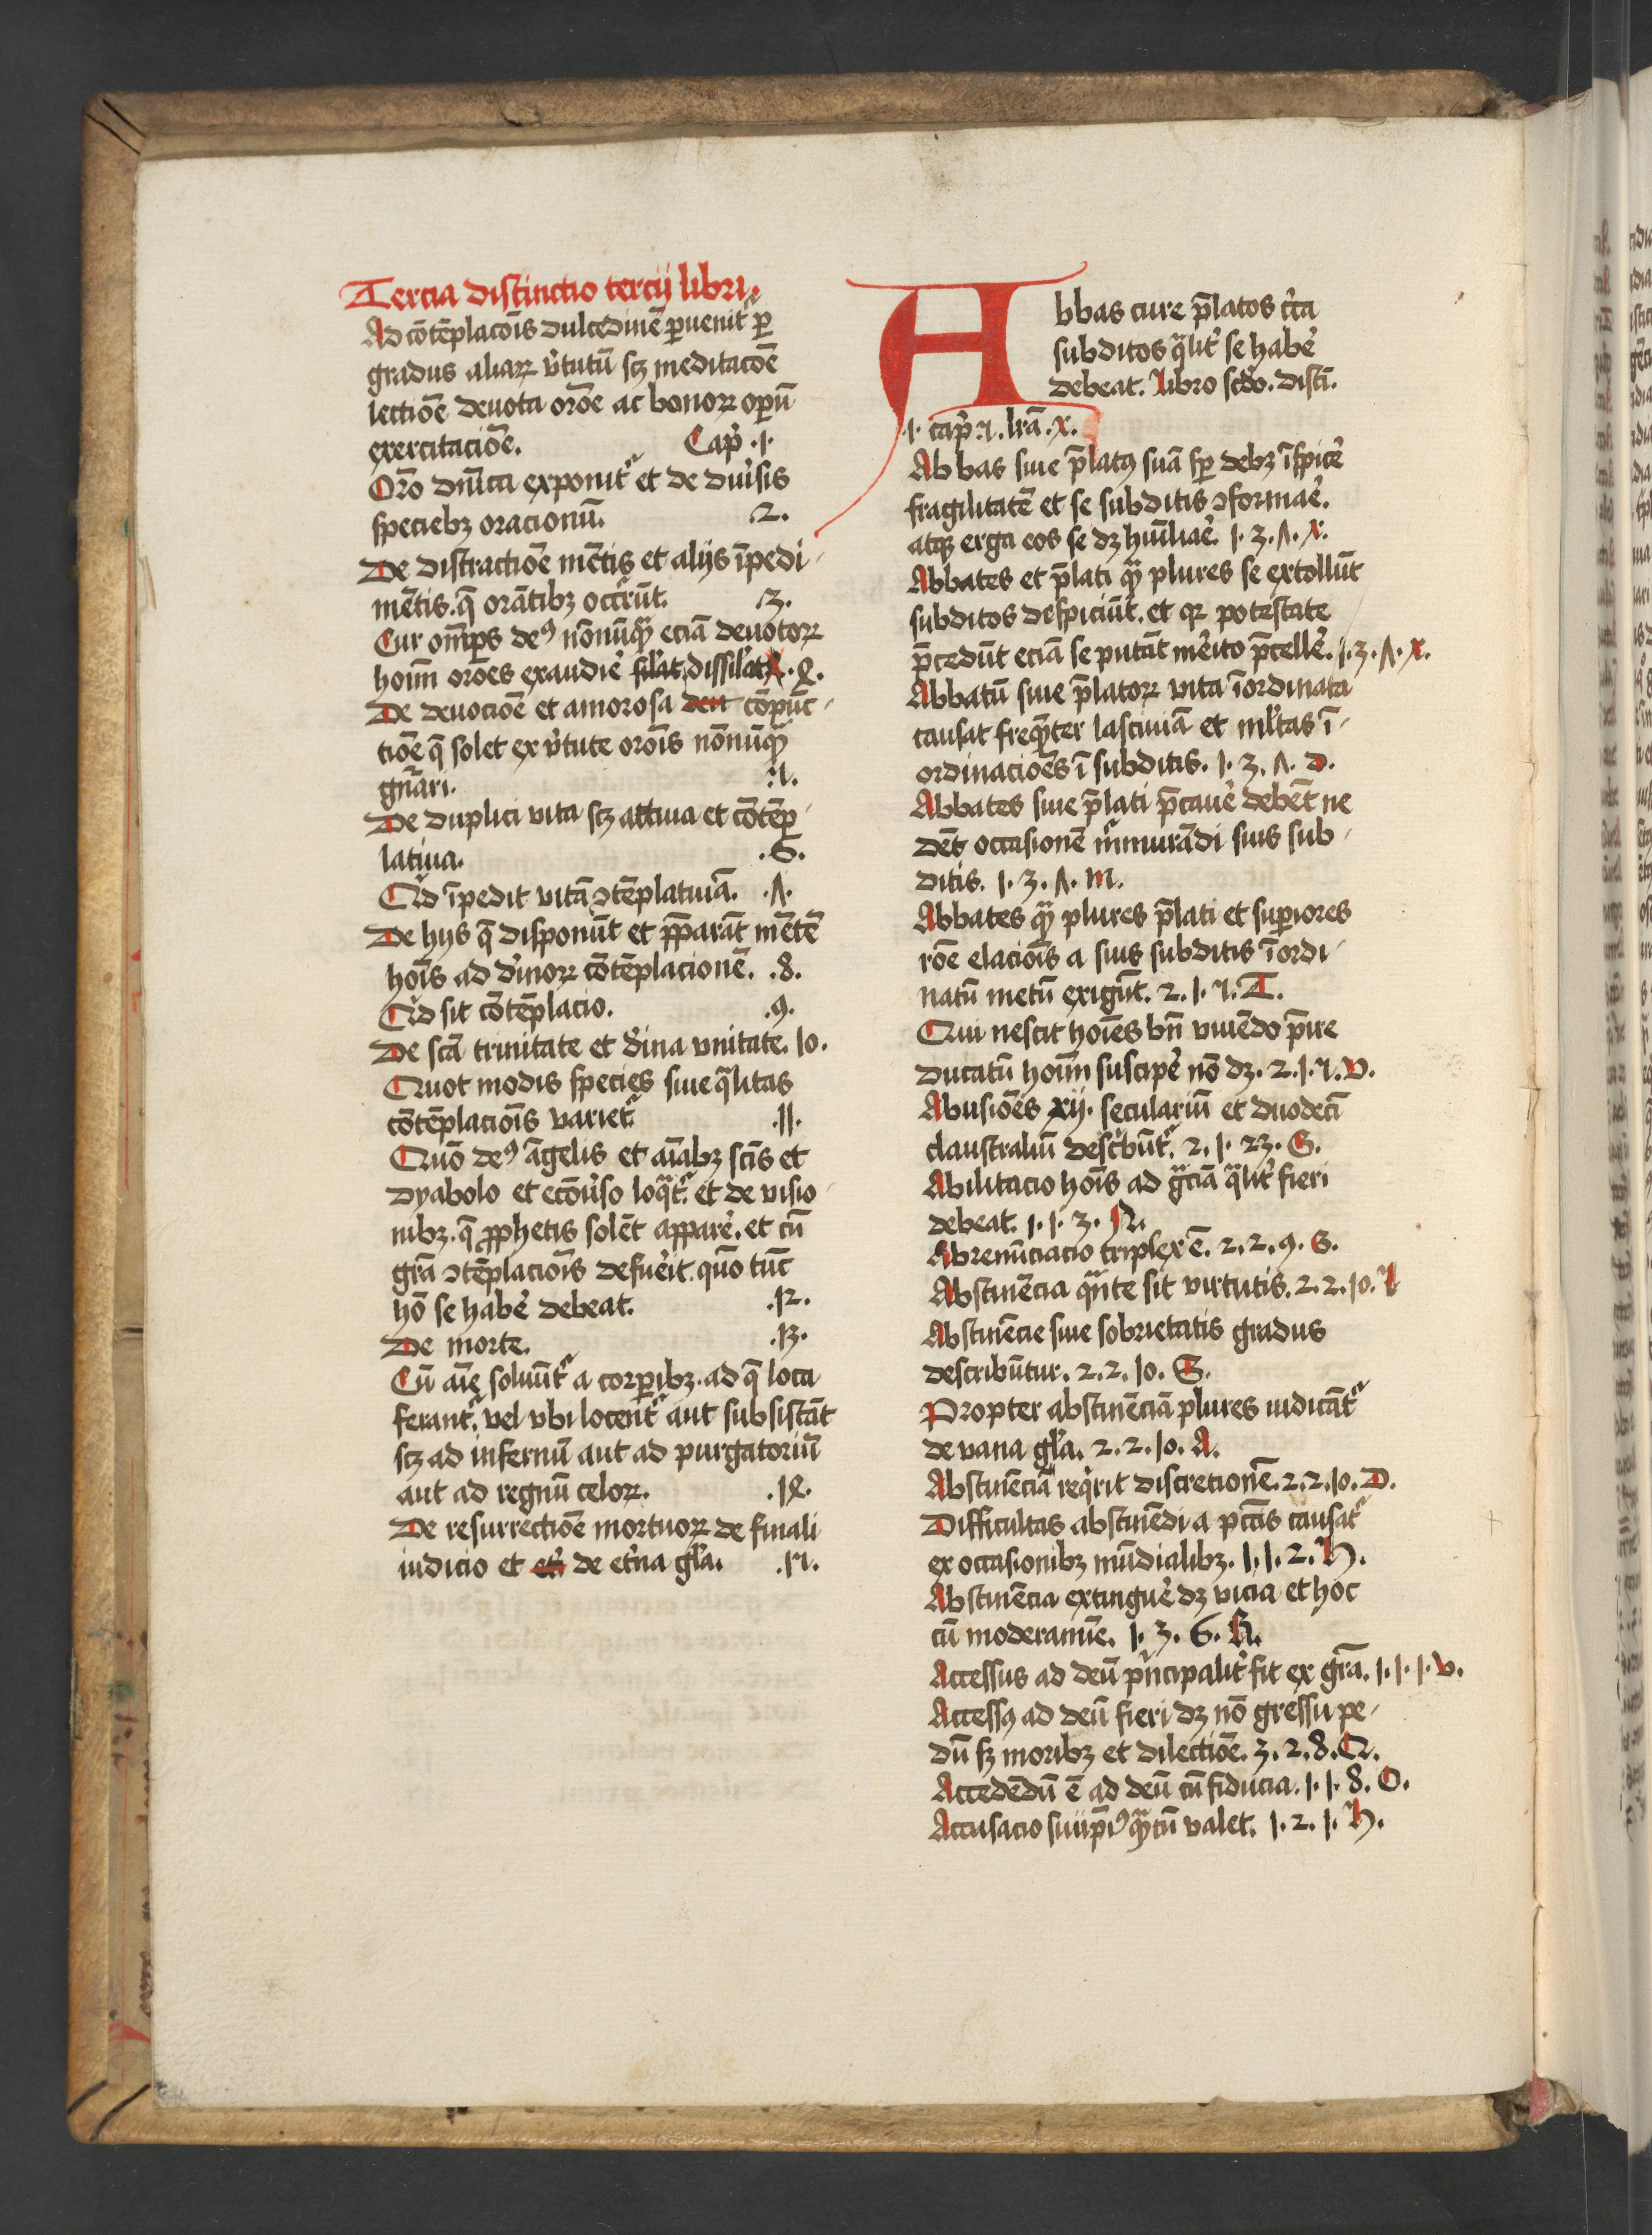 Tercia distinctio tercij libri.
Ad cōtēplacōis dulcedinē ꝑuenit᷑ ꝑ
gradus aliaꝝ v̓tutū scꝫ meditacōe
lectiōe deuota orōe ac bonoꝝ oꝑū
exercitaciōe. Cap̓ .1.
Orō dn̄ica exponit᷑ et de diu̓sis
speciebꝫ oracionū. .2.
De distractiōe mētis et alijs īpedi-
mētis. q̄ orātibꝫ occr̄rūt. .3.
Cur om̄ps deꝰ nōnūqꝫ eciā deuotoꝝ
hoīm orōes exaudiē sil̓at dissil̓at .4.
De deuociōe et amorosa den cōpūc-
tiōe q̄ solet ex v̓tute orōis nōnūqꝫ
gn̄ari. .5.
De duplici vita scꝫ actiua et cōtēp-
latiua. .6.
Qͥd īpedit vitā ꝯtēplatiuā. .7.
De hijs q̄ disponūt et p̄parāt mētē
hoīs ad diu̓inoꝝ cōtēplacionē. .8.
Qͥd sit cōtēplacio. .9.
De scā trinitate et diīna vnitate. 10.
Quot modis species siue qͣlitas
cōtēplacōis variet᷑ .11.
Quō deꝰ āgelis et aīabꝫ scīs et
dyabolo et ecōu̓so loqͣt᷑. et de visio-
nibꝫ. q̄ ꝓphetis solēt apparē. et cū
gr̄a ꝯtēplaciōis defuēit. quō tūc
hō se habē debeat. .12.
De morte. .13.
Cū aīe soluūt᷑ a corꝑibꝫ. ad q̄ loca
ferant᷑. vel vbi locent᷑ aut subsistāt
scꝫ ad infernū aut ad purgatoriū
aut ad regnū celoꝝ. .14.
De resurrectiōe mortuoꝝ de finali
iudicio et et̓ de et̓na gl̓a. .15.
Abbas cure p̄latos cͥca
subditos qͣlit̓ se habē
debeat. Libro scdo. disti.
.1. cap̓. 5. lrā .x.
Abbas siue p̄latꝰ suā sꝑ debꝫ īspicē
fragilitatē et se subditis ꝯformaē.
atqꝫ erga eos se dꝫ huīliaē. 1. 3. 7. x.
Abbates et p̄lati qͣꝫ plures se extollūt
subditos despiciūt. et qꝛ potestate
p̄cedūt eciā se putāt mēito p̄cellē. 1. 3. 7. x.
Abbatū siue p̄latoꝝ vita īordinata
causat freqͣꝫter lasciuiā et ml̓tas ī-
ordinaciōes ī subditis. 1. 3. 7. d.
Abbates siue p̄lati p̄cauē debēt ne
dēt occasionē m̓murādi suis sub-
ditis. 1. 3. 7. m.
Abbates qͣꝫ plures p̄lati et suꝑiores
rōe elaciōis a suis subditis īordi-
natū metū exigūt. 2. 1. 5. T.
Qui nescit hoīes bn̄ viuēdo p̄ire
ducatū hoīm suscipē nō dꝫ. 2. 1. 5. v.
Abusiōes xij. seculariū et duodecī
claustraliū descͥbūt᷑. 2. 1. 23. G.
Abilitacio hoīs ad gr̄ciā qͣlit̓ fieri
debeat. 1. 1. 3. N.
Abrenūciacio triplex ē. 2. 2. 9. G.
Abstinēcia qͣnte sit virtutis. 2. 2. 10.
Abstinēcie siue sobrietatis gradus
describūtur. 2. 2. 10. G.
Propter abstinēciā plures iudicāt᷑
de vana gl̓a. 2. 2. 10. A.
Abstinēciā reqͥrit discretionē. 2. 2. 10. D.
Difficultas abstinēdi a pctīs causat᷑
ex occasionibꝫ mūdialibꝫ. 1. 1. 2. H.
Abstinēcia extinguē dꝫ vicia et hoc
cū moderamīe. 1. 3. 6. K.
Accessus ad deū pͥncipalit̓ fit ex gr̄a. 1. 1. 1. v.
Accessꝰ ad deū fieri dꝫ nō gressu pe-
dū sꝫ moribꝫ et dilectiōe. 3. 2. 8. Q.
Accedēdū ē ad deū cū fiducia. 1. 1. 8. O.
Accusacio suiip̄iꝰ qͣꝫtū valet. 1. 2. 1. H.